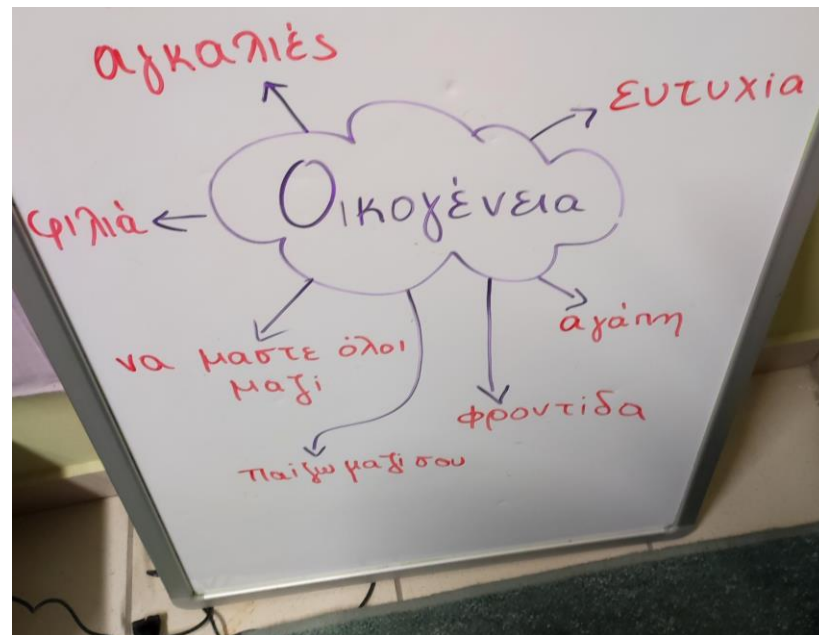 αγκαλιές
ευτυχία
Οικογένεια
φιλιά
αγάπη
να μαστε όλοι
μαζί
φροντίδα
παίζω μαζί σου